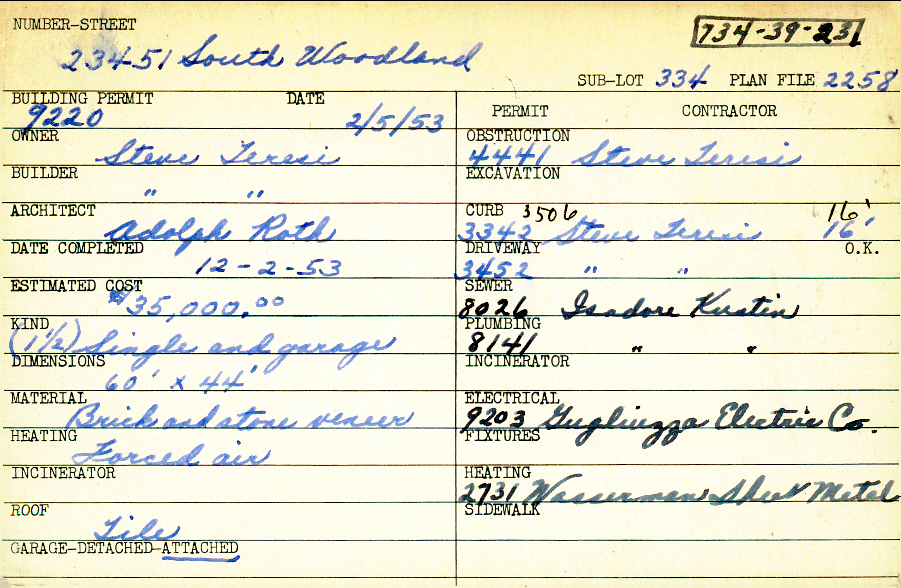 NUMBER-STREET
734-39-231
23451 South Woodland
SUB-LOT 334 PLAN FILE 2258
BUILDING PERMIT DATE
9220 2/5/53
OWNER
Steve Teresi
BUILDER
" "
ARCHITECT
Adolph Roth
DATE COMPLETED
12-2-53
ESTIMATED COST
$35,000.00
KIND
(1½) Single and garage
DIMENSIONS
60' x 44'
MATERIAL
Brick and stone veneer
HEATING
Forced air
INCINERATOR
ROOF
Tile
GARAGE-DETACHED-ATTACHED
PERMIT CONTRACTOR
OBSTRUCTION
4441 Steve Teresi
EXCAVATION
CURB 3506 16'
3342 Steve Teresi 16'
DRIVEWAY O.K.
3452 " "
SEWER
8026 Isadore Kurtin
PLUMBING
8141 " "
INCINERATOR
ELECTRICAL
9203 Gugliuzza Electric Co.
FIXTURES
HEATING
2731 Wasserman Sheet Metal
SIDEWALK